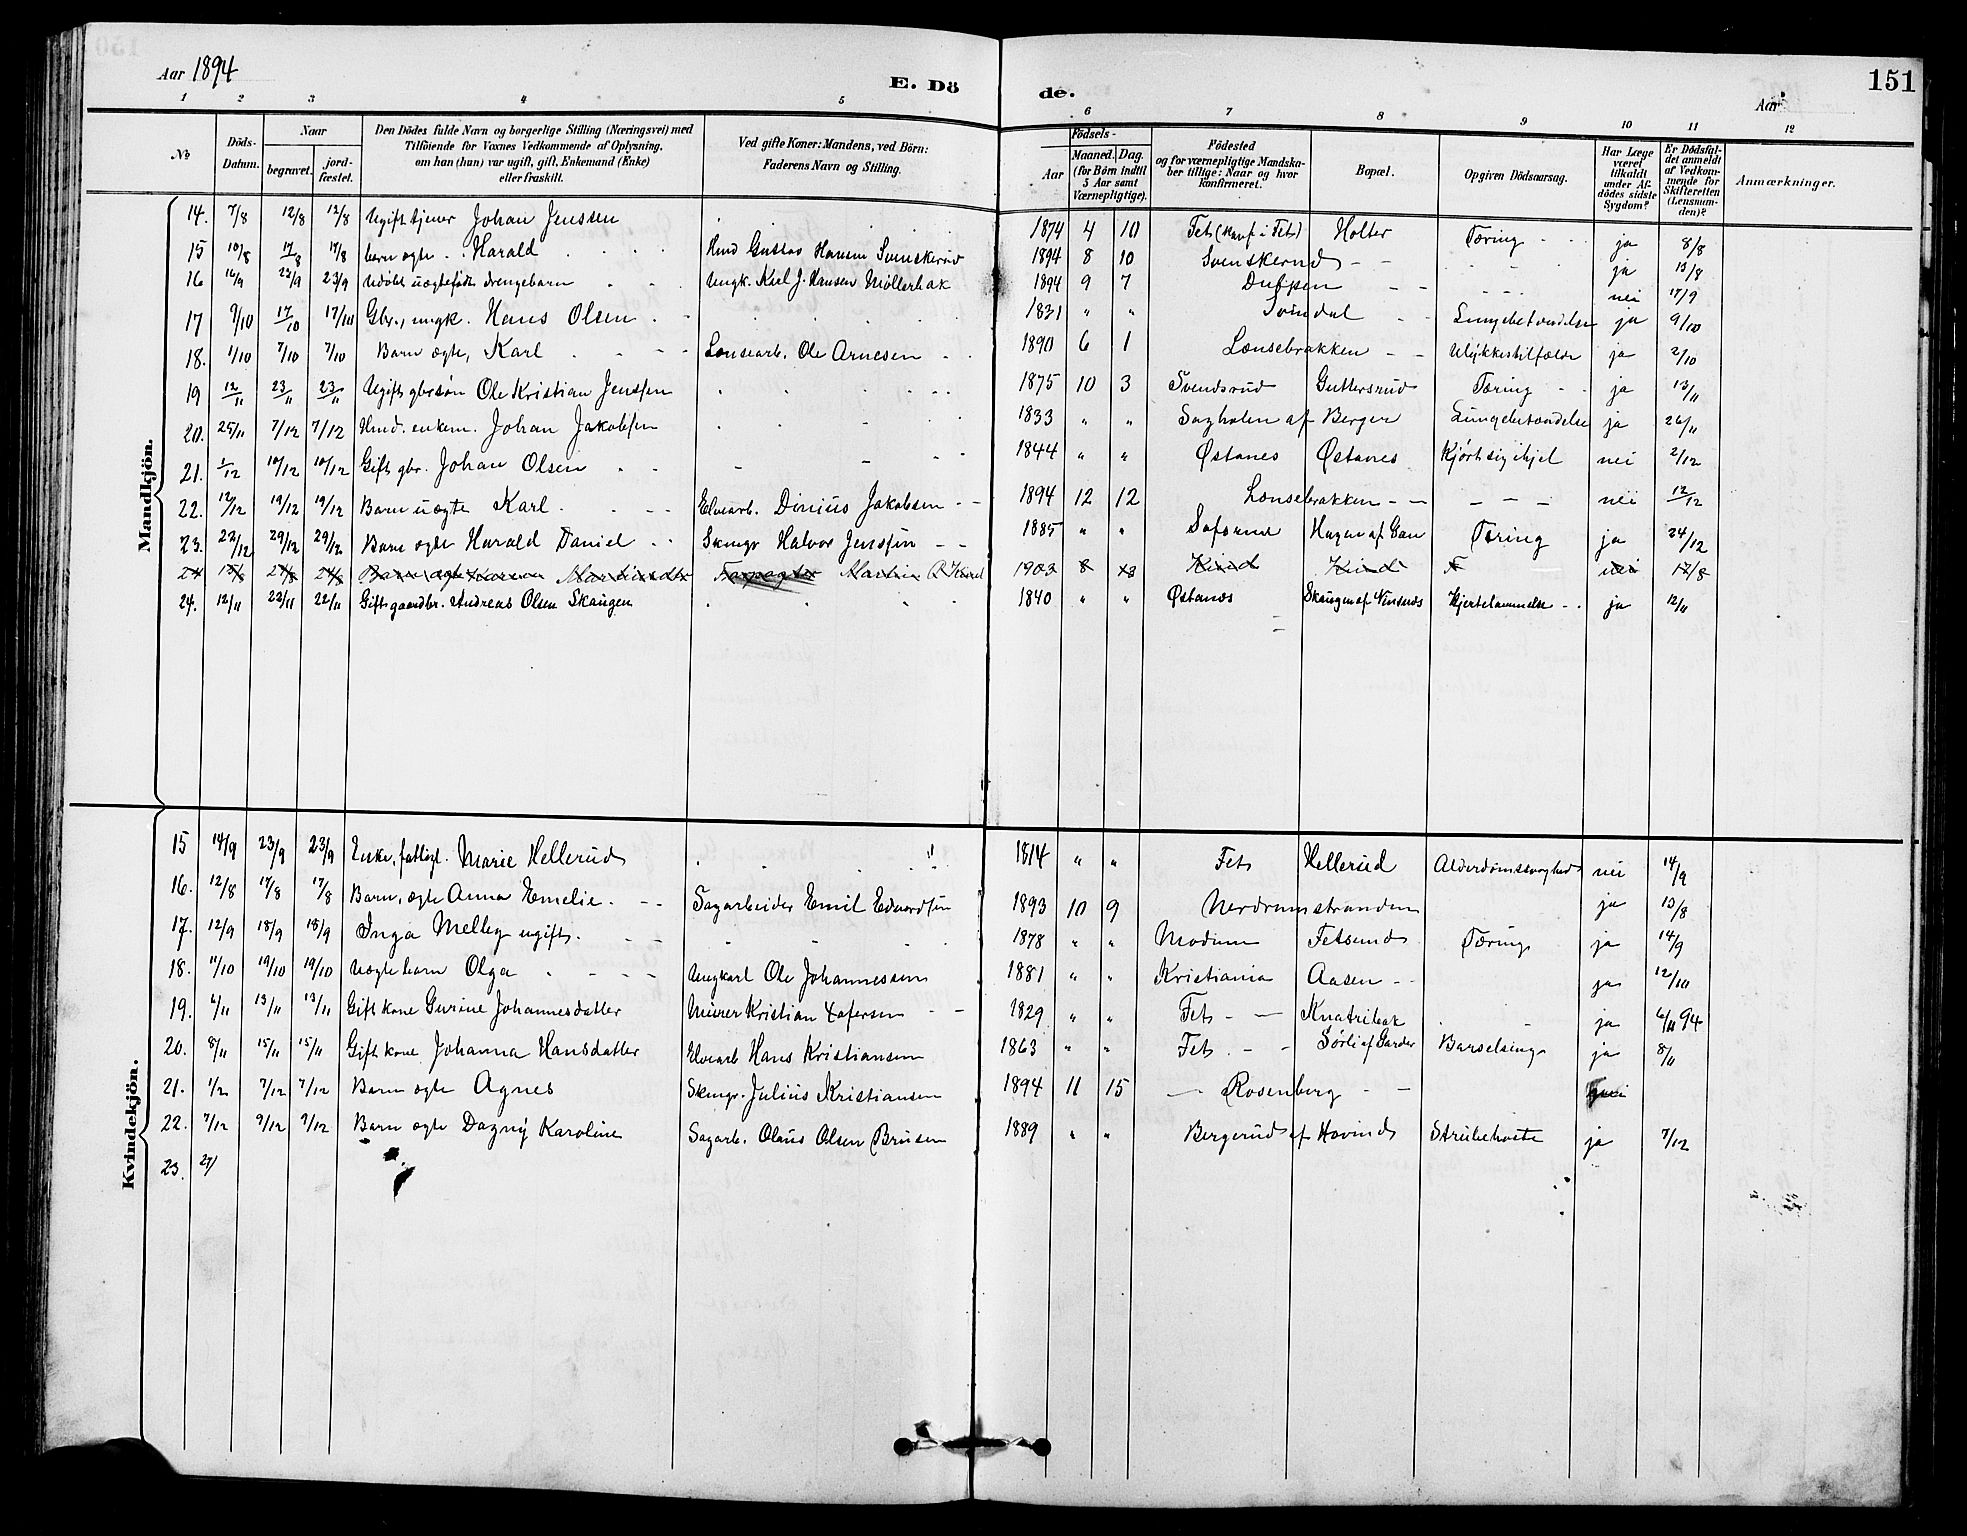 Aar 1894
E. Dö de.
151
Aar
1 2 3 4 5 6 7 8 9 10 11 12
No
Döds-Datum.
Naar
begravet.
jord-fæstet.
Den Dödes fulde Navn og borgerlige Stilling (Næringsvei) med
Tilföiende for Voxnes Vedkommende af Oplysning,
om han (hun) var ugift, gift, Enkemand (Enke)
eller fraskilt.
Ved gifte Koner: Mandens, ved Börn:
Faderens Navn og Stilling.
Födsels-
Aar
Maaned. Dag.
(for Börn indtil
5 Aar samt
Værnepligtige).
Födested
og for værnepligtige Mandska-
ber tillige: Naar og hvor
konfirmeret.
Bopæl.
Opgiven Dödsaarsag.
Har Læge
været
tilkaldt
under Af-
dödes sidste
Sygdom?
Er Dödsfal-
det anmeldt
af Vedkom-
mende for
Skifteretten
(Lensman-
den)?
Anmærkninger.
Mandkjön.
14. 7/8 12/8 12/8 Ugift tjener Johan Jenssen 1874 4 10 Fet (Konf i Fet) Holter Tæring ja 8/8
15 10/8 17/8 17/8 barn ægte Harald Hmd Gustav Hansen Svenskerud 1894 8 10 Svenskerud ja 13/8
16 16/9 23/9 23/9 Udöbt uægtefödt drengebarn Ungk. Karl J. Hansen Möllerbak 1894 9 7 nei 17/9
17 9/10 17/10 17/10 Gbr., ungk. Hans Olsen 1831 " " Svindal Lungebetændelse ja 9/10
18. 1/10 7/10 7/10 Barn ægte, Karl Lensearb. Ole Arnesen 1890 6 1 Lænsebrakken Ulykkestilfælde ja 2/10
19 12/11 23/11 23/11 Ugift gbrsön Ole Kristian Jenssen 1875 10 3 Svendsrud Guttersrud Tæring ja 13/11
20. 25/11 7/12 7/12 Hmd. enkem. Johan Jakobsen 1833 " " Sagholen af Berger Lungebetændelse ja 26/11
21. 1/12 10/12 10/12 Gift gbr. Johan Olsen 1844 " " Østanes Østanes Kjört sig ihjel nei 2/12
22. 12/12 19/12 19/12 Barn uægte Karl Elvearb. Dinius Jakobsen 1894 12 12 Lænsebrakken nei 12/12
23. 22/12 29/12 29/12 Barn ægte Harald Daniel Skmgr Halvor Jenssen 1885 " " Hagen af Gan Tæring ja 24/12
Barn ægte Martin 1903 8 Kind Kind F nei 17/8
24. 12/11 22/11 22/11 Gift gaardbr. Andreas Olsen Skaugen 1840 " " Østanes Skaugen af Hjertelammelse ja 12/11
Kvindekjön.
15 14/9 23/9 23/9 Enke, fattigl. Marie Hellerud " 1814 " " Fet Hellerud Alderdomssvaghed nei 14/9
16. 12/8 17/8 17/8 Barn, ægte Anna Emelie Sagarbeider Emil Edvardsen 1893 10 9 Nerdrumstranden ja 13/8
17. 12/9 18/9 18/9 Inga Melleg ugift. 1878 " " Modum Fetsund Tæring ja 14/9
18. 11/10 19/10 19/10 Uægte barn Olga Ungkarl Ole Johannessen 1881 " " Kristiania Aasen ja 12/10
19. 6/11 13/11 13/11 Gift kone Gurine Johannesdatter Murer Kristian 1829 " " Fet Knatribak ja 6/11 94
20. 8/11 15/11 15/11 Gift kone Johanna Hansdatter Elvearb Hans Kristiansen 1863 " " Fet Sörli af Garder Barselseng ja 8/11
21. 1/12 7/12 7/12 Barn ægte Agnes Skmgr. Julius Kristiansen 1894 11 15 Rosenberg nei
22. 7/12 9/12 9/12 Barn ægte Dagny Karoline Sagarb. Olaus Olsen Brusen 1889 " " Bergerud af Hovind Strubehoste ja 7/12
23. 27/